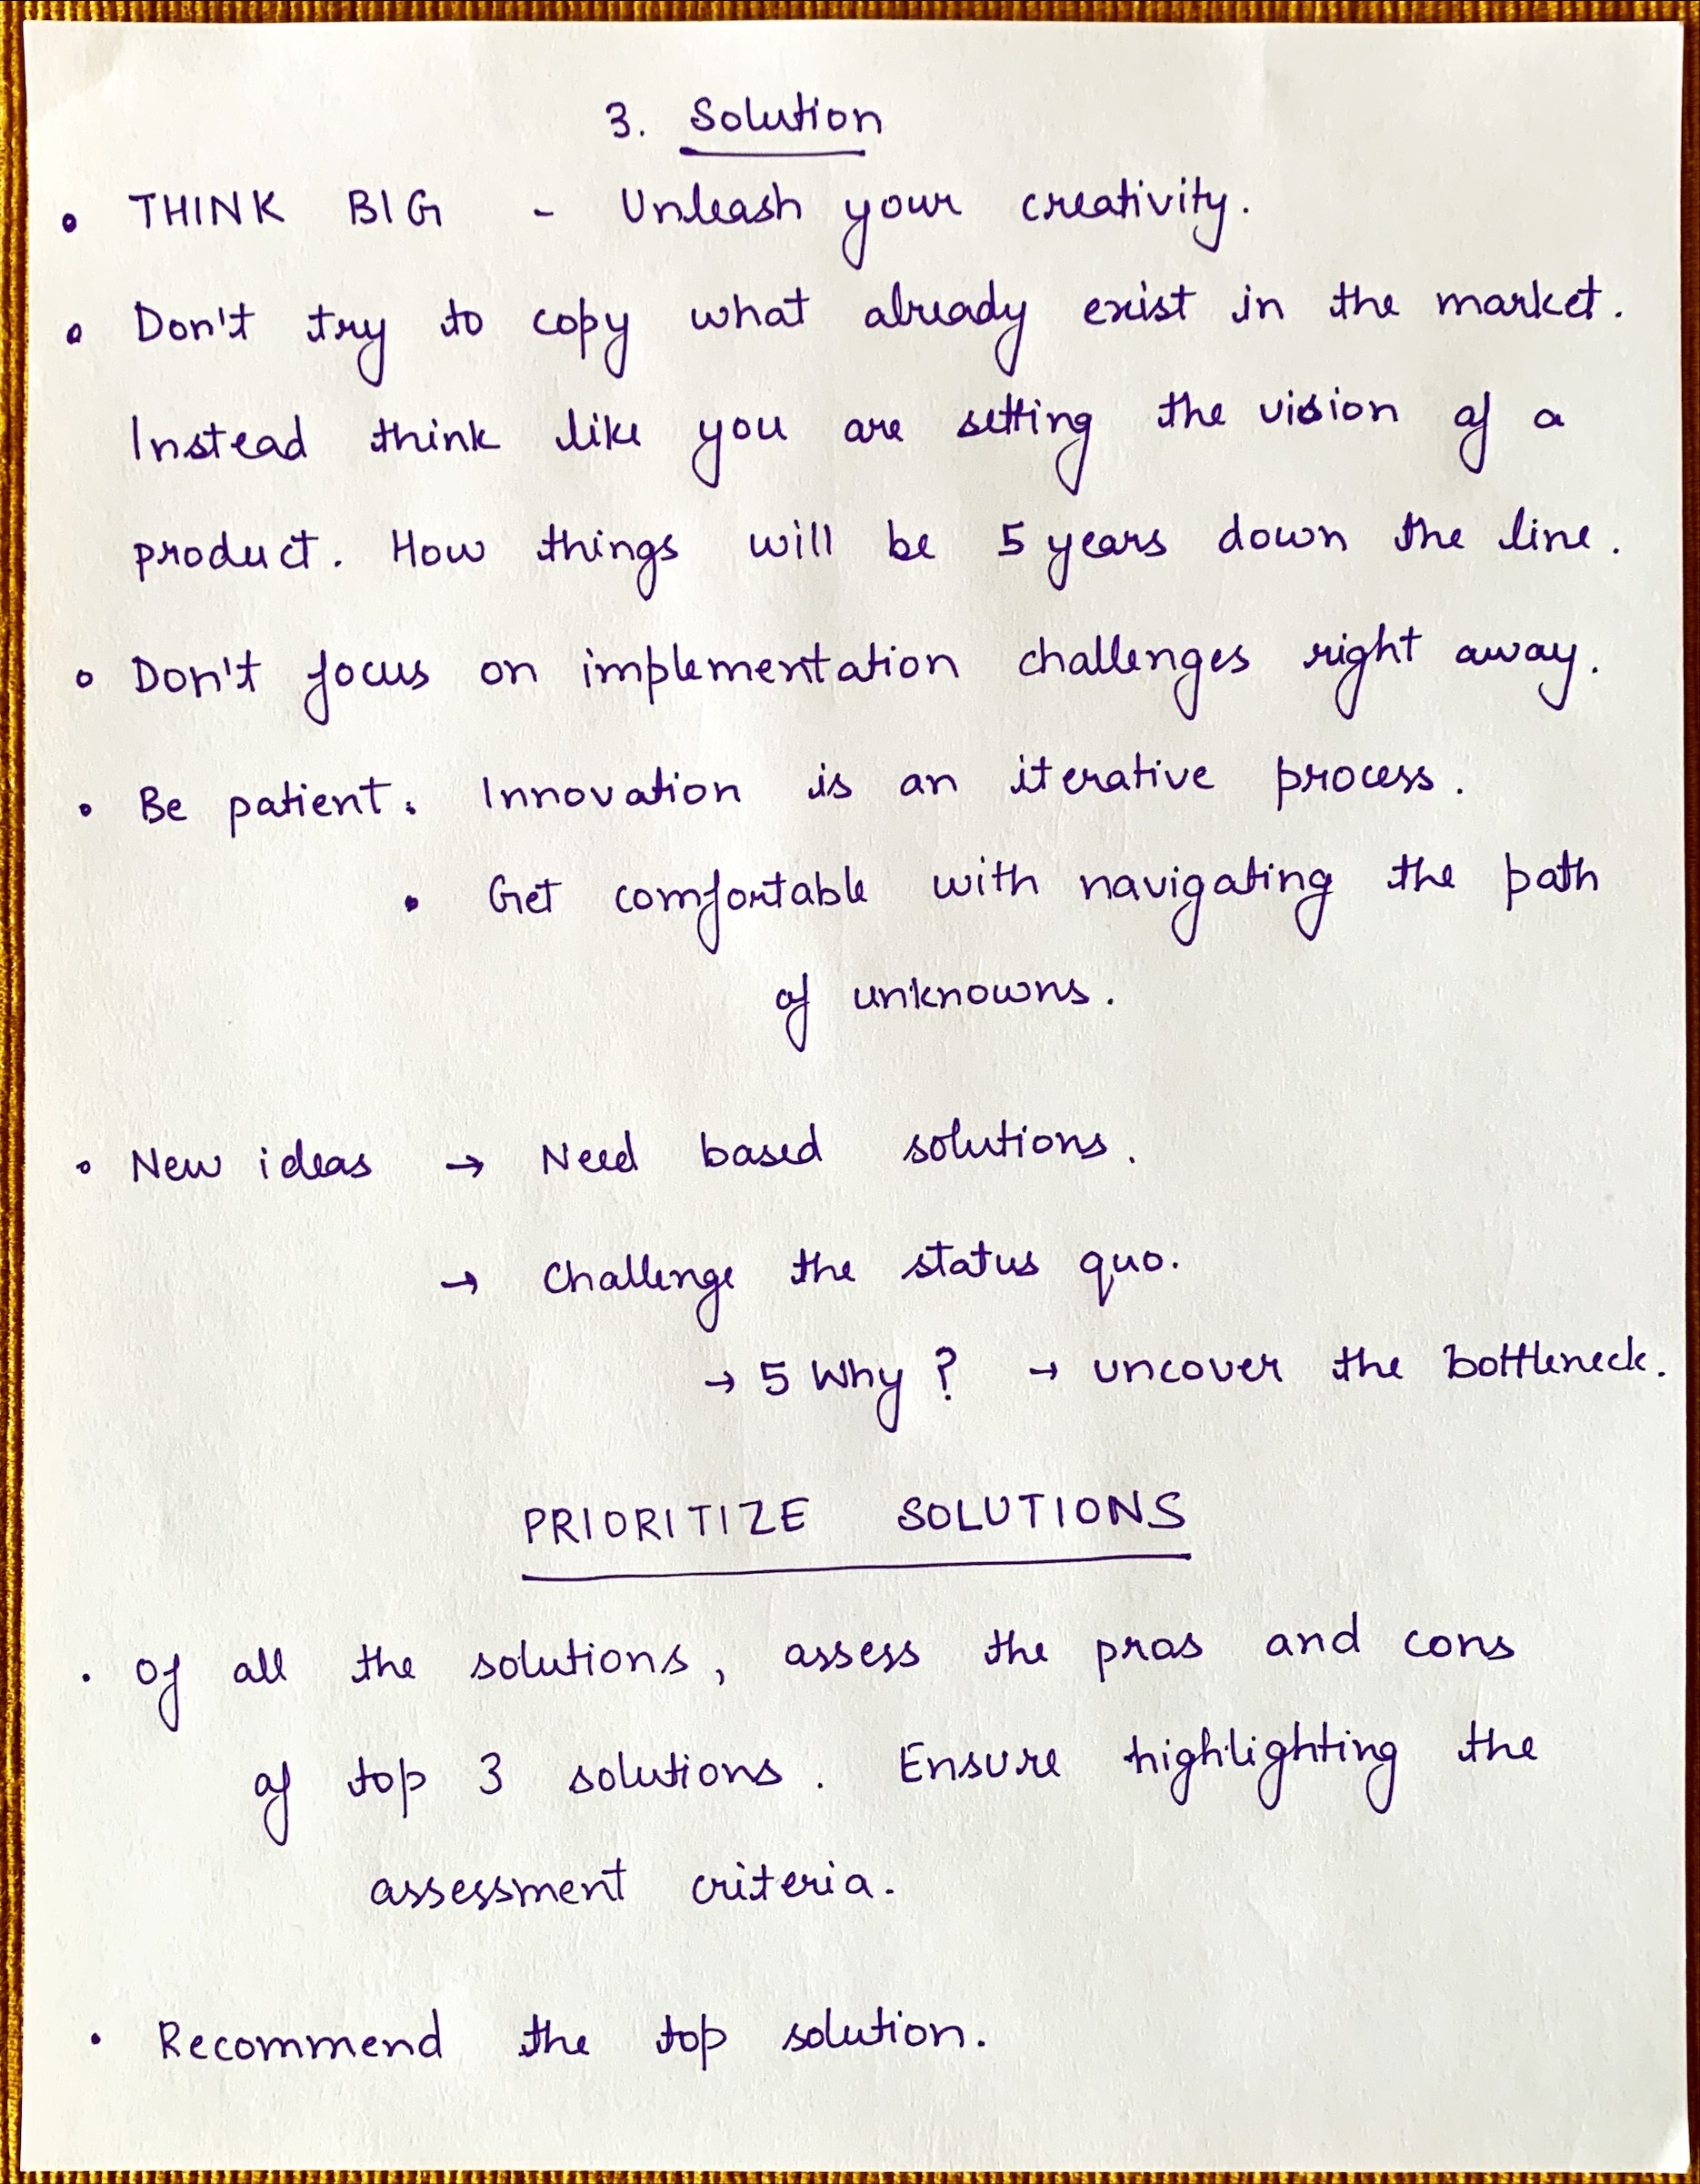 3. Solution
• THINK BIG - Unleash your creativity.
• Don't try to copy what already exist in the market.
Instead think like you are setting the vision of a
product. How things will be 5 years down the line.
• Don't focus on implementation challenges right away.
• Be patient. Innovation is an iterative process.
• Get comfortable with navigating the path
of unknowns.
• New ideas → Need based solutions.
→ Challenge the status quo.
→ 5 Why ? → uncover the bottleneck.
PRIORITIZE SOLUTIONS
• Of all the solutions, assess the pros and cons
of top 3 solutions. Ensure highlighting the
assessment criteria.
• Recommend the top solution.